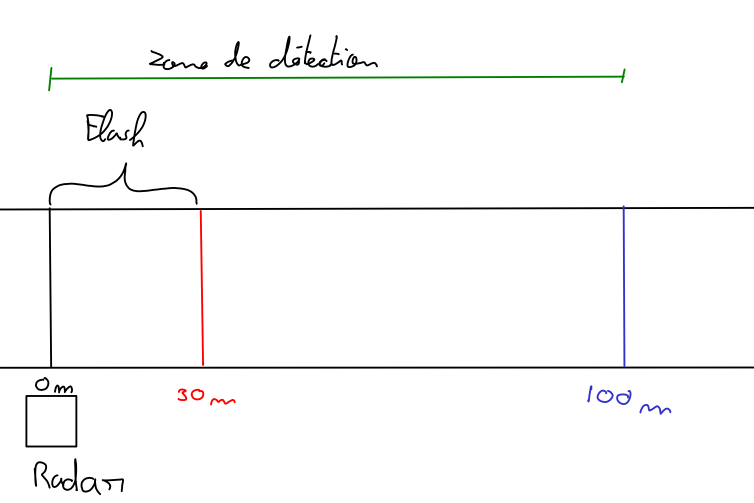 zone de détection
Flash
0m
30m
100m
Radar